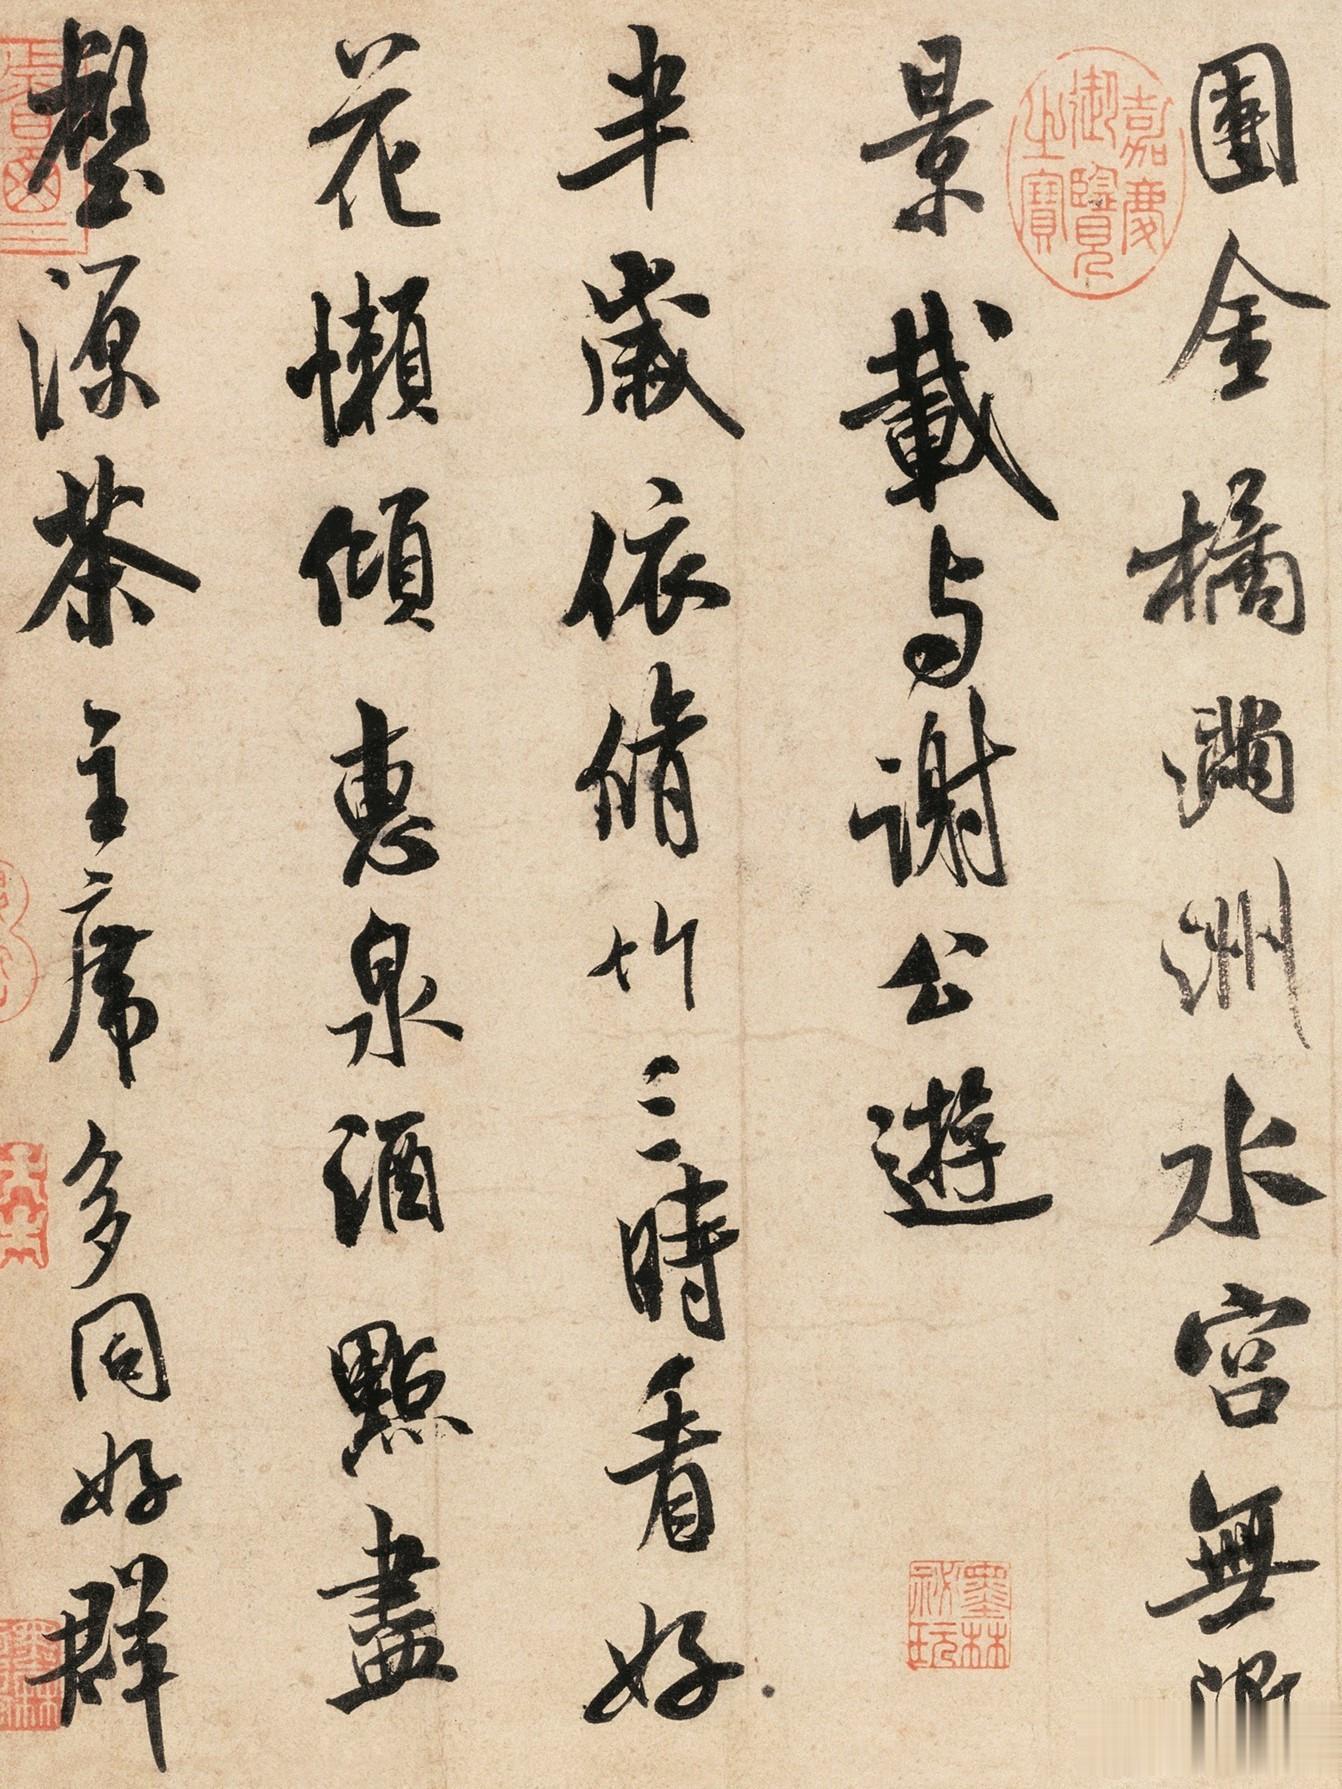 團金橘滿洲水宮無
景載与謝公遊
半歲依脩竹三時看好
花懶傾惠泉酒點盡
壑源茶主席多同好群
嘉慶
御覽
之寶
墨林
祕玩